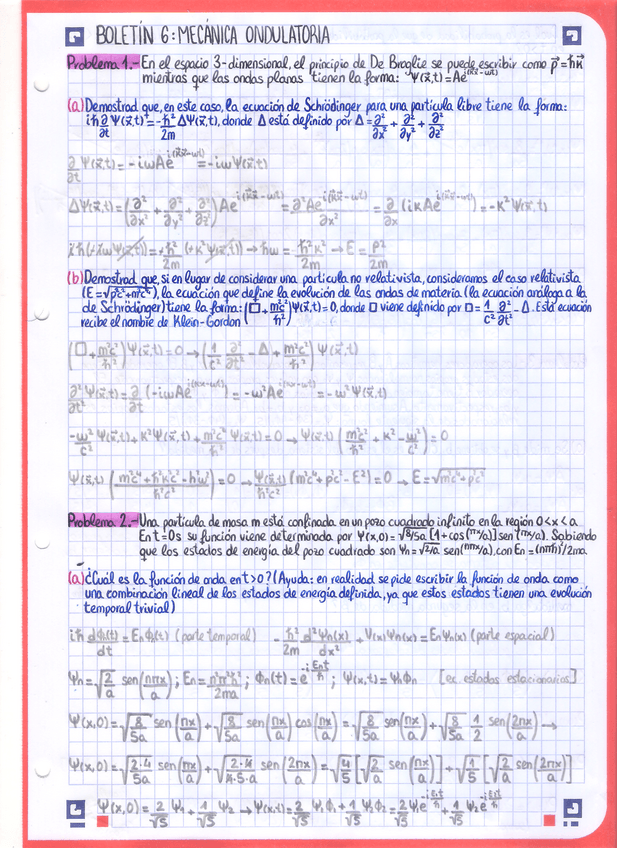 BOLETÍN 6: MECÁNICA ONDULATORIA
Problema 1.- En el espacio 3-dimensional, el principio de De Broglie se puede escribir como p⃗ = ħk⃗
mientras que las ondas planas tienen la forma: Ψ(x⃗,t) = Ae^{i(k⃗x⃗-ωt)}
(a) Demostrad que, en este caso, la ecuación de Schrödinger para una partícula libre tiene la forma:
iħ ∂/∂t Ψ(x⃗,t) = -ħ²/2m ΔΨ(x⃗,t), donde Δ está definido por Δ = ∂²/∂x² + ∂²/∂y² + ∂²/∂z²
∂/∂t Ψ(x⃗,t) = -iωAe^{i(k⃗x⃗-ωt)} = -iωΨ(x⃗,t)
ΔΨ(x⃗,t) = (∂²/∂x² + ∂²/∂y² + ∂²/∂z²) Ae^{i(k⃗x⃗-ωt)} = ∂²Ae^{i(k⃗x⃗-ωt)}/∂x² = ∂/∂x (ikAe^{i(k⃗x⃗-ωt)}) = -k²Ψ(x⃗,t)
iħ(-iωΨ(x⃗,t)) = -ħ²/2m (-k²Ψ(x⃗,t)) → ħω = ħ²k²/2m → E = p²/2m
(b) Demostrad que, si en lugar de considerar una partícula no relativista, consideramos el caso relativista
(E = √(p²c²+m²c⁴)), la ecuación que define la evolución de las ondas de materia (la ecuación análoga a la
de Schrödinger) tiene la forma: (□ + m²c²/ħ²)Ψ(x⃗,t) = 0, donde □ viene definido por □ = 1/c² ∂²/∂t² - Δ. Esta ecuación
recibe el nombre de Klein-Gordon
(□ + m²c²/ħ²)Ψ(x⃗,t) = 0 → (1/c² ∂²/∂t² - Δ + m²c²/ħ²) Ψ(x⃗,t)
∂²Ψ(x⃗,t)/∂t² = ∂/∂t (-iωAe^{i(kx-ωt)}) = -ω²Ae^{i(kx-ωt)} = -ω²Ψ(x⃗,t)
-ω²/c² Ψ(x⃗,t) + k²Ψ(x⃗,t) + m²c²/ħ² Ψ(x⃗,t) = 0 → Ψ(x⃗,t) (m²c²/ħ² + k² - ω²/c²) = 0
Ψ(x⃗,t) (m²c⁴ + ħ²k²c² - ħ²ω²)/ħ²c² = 0 → Ψ(x⃗,t)/ħ²c² (m²c⁴ + p²c² - E²) = 0 → E = √(m²c⁴ + p²c²)
Problema 2.- Una partícula de masa m está confinada en un pozo cuadrado infinito en la región 0<x<a
En t=0s su función viene determinada por Ψ(x,0) = √(8/5a) [1+cos(πx/a)] sen(πx/a). Sabiendo
que los estados de energía del pozo cuadrado son Ψn = √(2/a) sen(nπx/a), con En = (nπħ)²/2ma.
(a) ¿Cuál es la función de onda en t>0? (Ayuda: en realidad se pide escribir la función de onda como
una combinación lineal de los estados de energía definida, ya que estos estados tienen una evolución
temporal trivial)
iħ dϕn(t)/dt = Enϕn(t) (parte temporal) -ħ²/2m d²Ψn(x)/dx² + V(x)Ψn(x) = EnΨn(x) (parte espacial)
Ψn = √(2/a) sen(nπx/a); En = n²π²ħ²/2ma; ϕn(t) = e^{-iEnt/ħ}; Ψ(x,t) = Ψnϕn [ec. estados estacionarios]
Ψ(x,0) = √(8/5a) sen(πx/a) + √(8/5a) sen(πx/a) cos(πx/a) = √(8/5a) sen(πx/a) + √(8/5a) 1/2 sen(2πx/a) →
Ψ(x,0) = √(2·4/5a) sen(πx/a) + √(2·4/4·5·a) sen(2πx/a) = √(4/5) [√(2/a) sen(πx/a)] + √(1/5) [√(2/a) sen(2πx/a)]
Ψ(x,0) = 2/√5 Ψ₁ + 1/√5 Ψ₂ → Ψ(x,t) = 2/√5 Ψ₁ϕ₁ + 1/√5 Ψ₂ϕ₂ = 2/√5 Ψ₁e^{-iE₁t/ħ} + 1/√5 Ψ₂e^{-iE₂t/ħ}